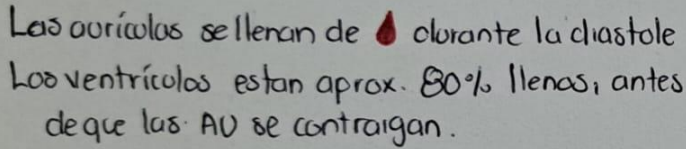 Las aurículas se llenan de 🩸 durante la diastole
Los ventrículos estan aprox. 80% llenos, antes
de que las AU se contraigan.